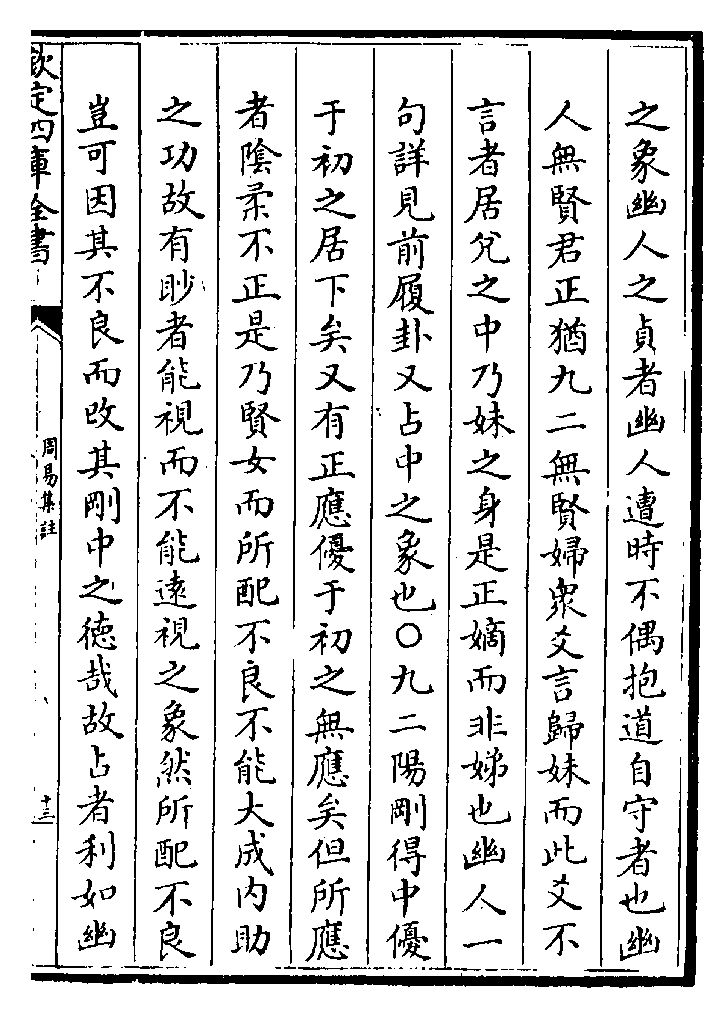 之象幽人之貞者幽人遭時不偶抱道自守者也幽
人無賢君正猶九二無賢婦衆爻言歸妹而此爻不
言者居兊之中乃妹之身是正嫡而非娣也幽人一
句詳見前履卦又占中之象也○九二陽剛得中優
于初之居下矣又有正應優于初之無應矣但所應
者陰柔不正是乃賢女而所配不良不能大成内助
之功故有眇者能視而不能遠視之象然所配不良
豈可因其不良而改其剛中之德哉故占者利如幽
欽定四庫全書
周易集註
十三